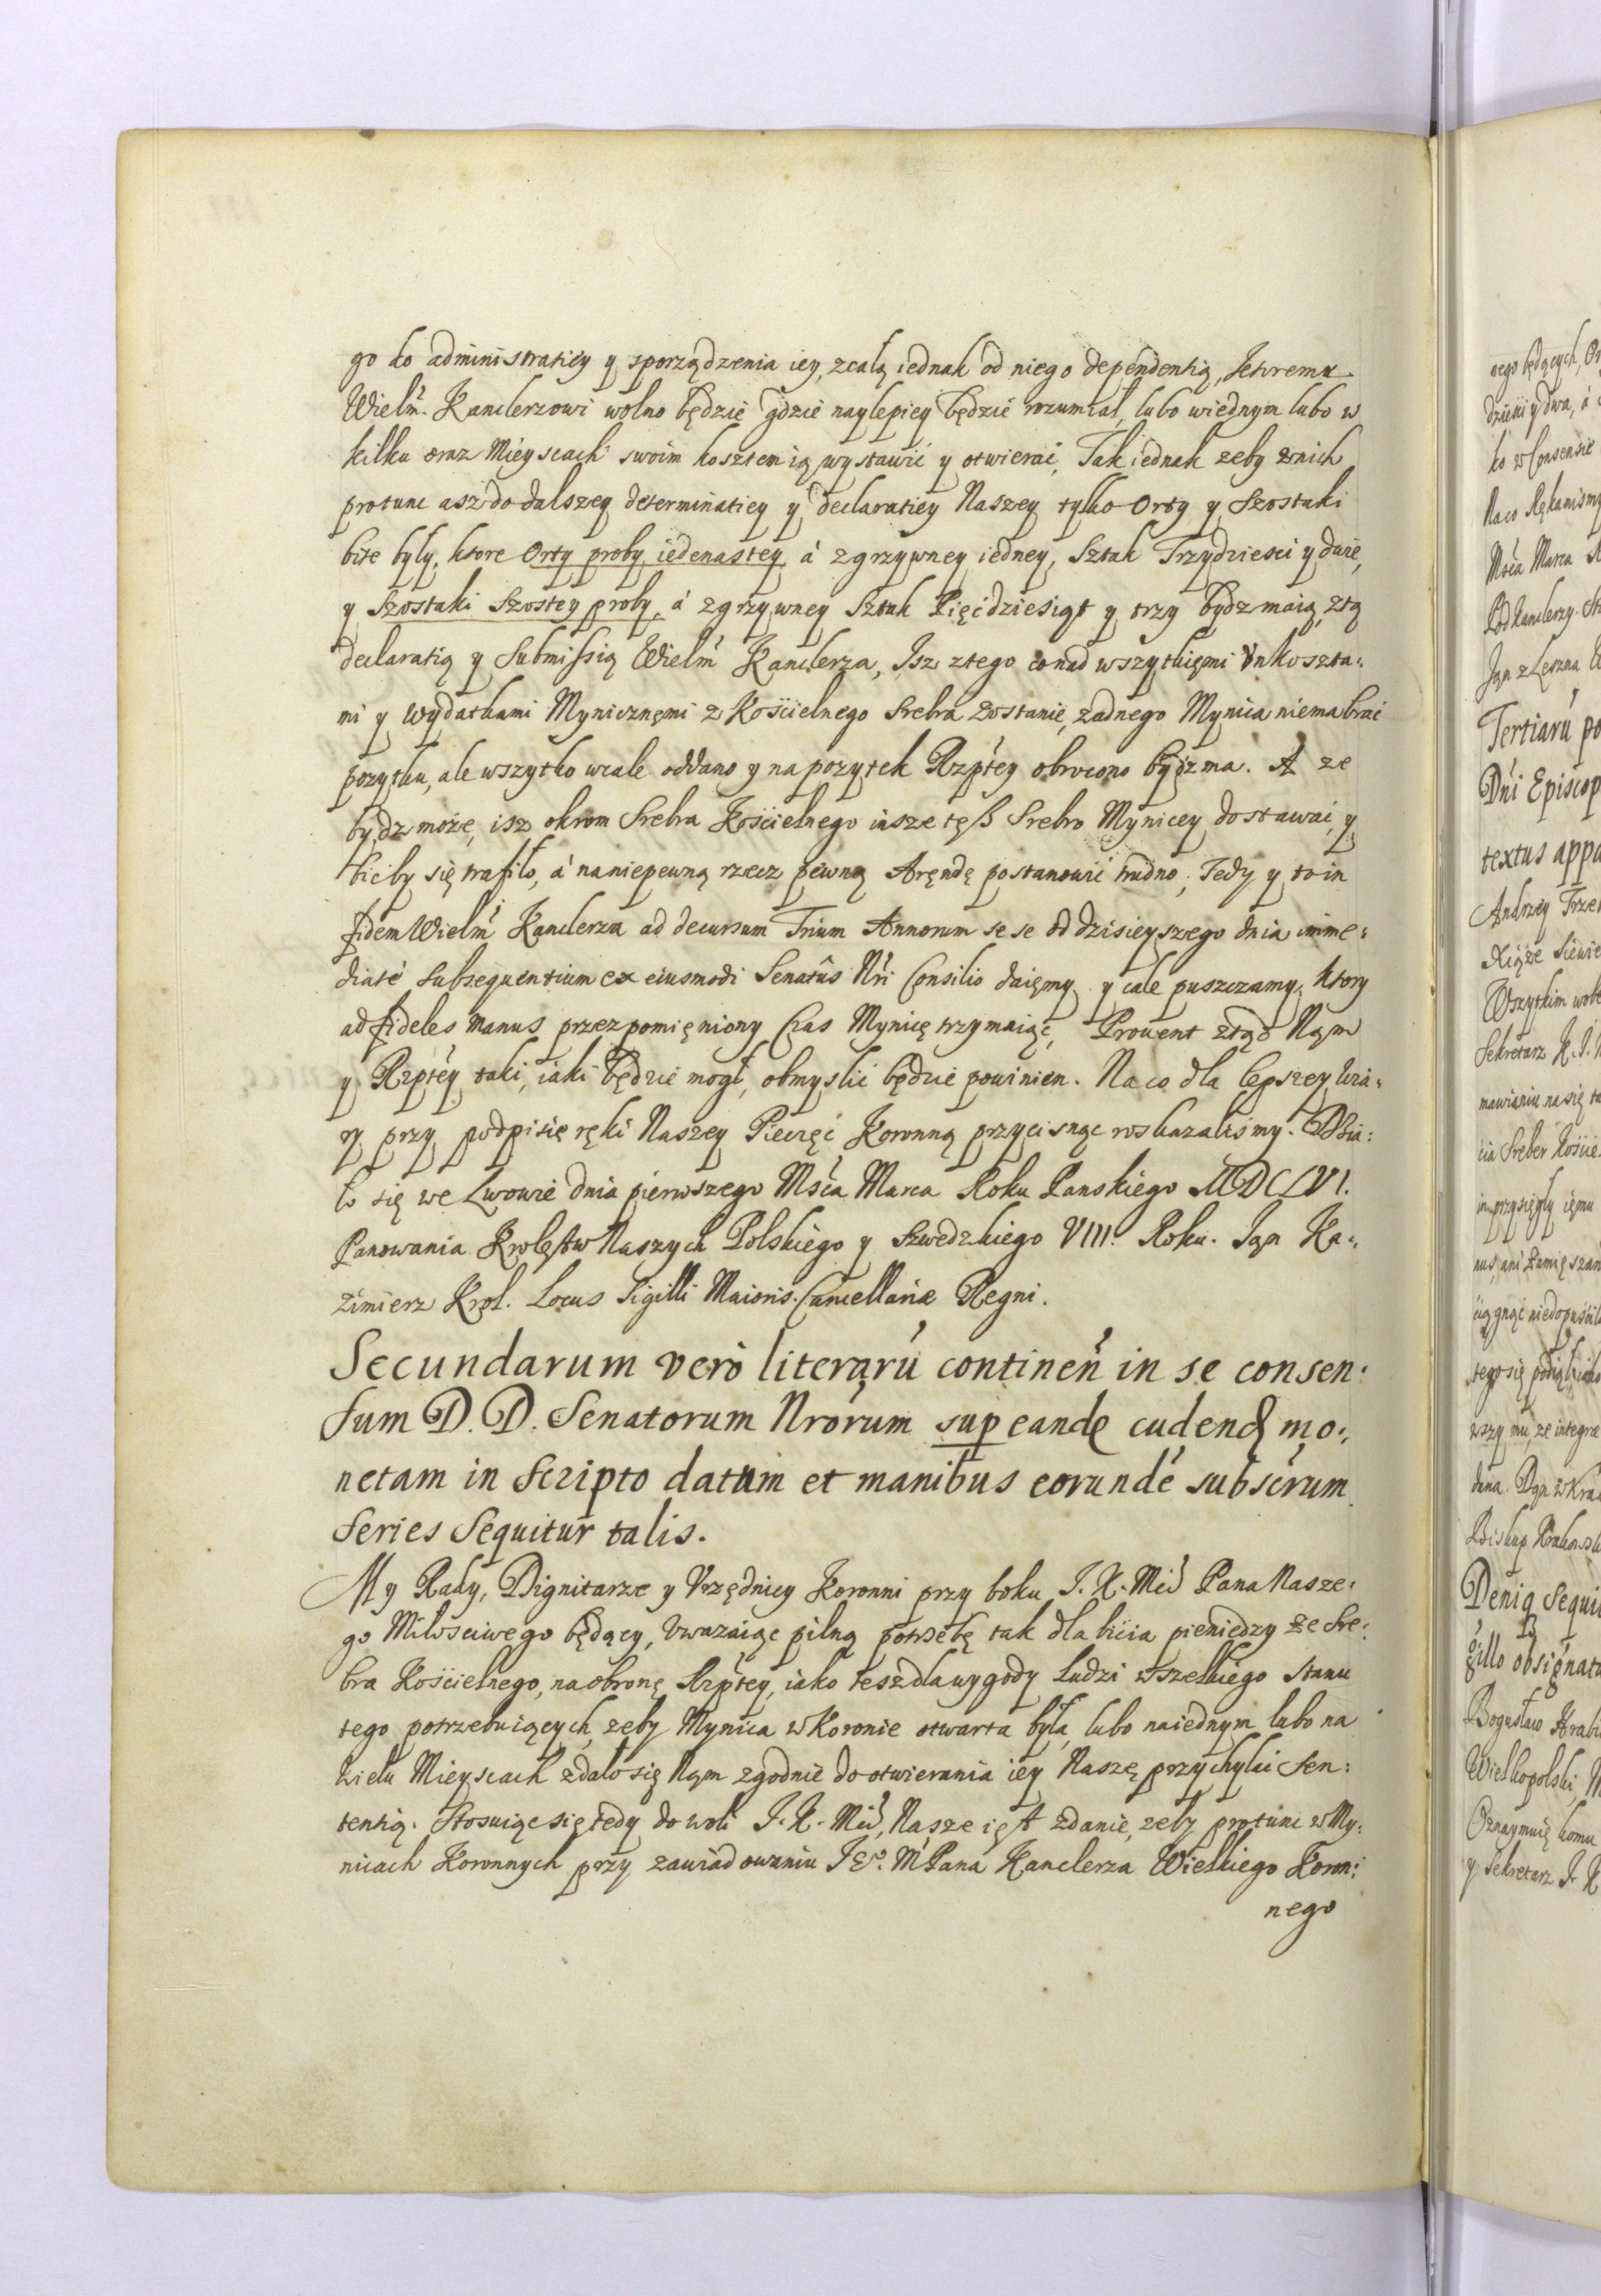 go ko administratiey y sporządzenia iey, zcałą iednak od niego dependentią, Ktoremu
Wielm̃. Kanclerzowi wolno będzie gdzie naylepiey będzie rozumiał, lubo wiednym lubo w
kilku oraz Mieyscach swoim kosztem ią wystawić y otwierać, Tak iednak zeby wnich
protunc asz do dalszey determinatiey y declaratiey Naszey tylko Orty y Szostaki
bite były, ktore Orty proby iedenastey á zgrzywney iedney, Sztuk Trzydziesci y dwie,
y Szostaki Szostey proby, á zgrzywney Sztuk Pięćdziesiąt y trzy bydz maią, ztą
declaratią y Submissią Wielm̃ Kanclerza, Isz ztego co nad wszytkięmi Vnkoszta:
mi y wydatkami Mynicznęmi z Kościelnego Srebra zostanie, zadnego Mynica niema brać
pozytku, ale wszytko wcale oddano y na pozytek Rzptey obrocono bydz ma. A ze
bydz może, isz okrom Srebra Kościelnego insze tęß Srebro Mynicey dostawać, y
bić by się trafiło, á naniepewną rzecz pewną Aręndę postanowić trudno, Tedy y to in
fidem Wielm̃ Kanclerza ad decursum Trium Annorum se se od dzisieyszego dnia imme:
diatè subsequentium ex eiusmodi Senatûs Nri Consilio daięmy y cale puszczamy, ktory
ad fideles manus przez pomięniony Czas Mynicę trzymaiąc, Prouent ztąd Nąm
y Rzptey taki, iaki będzie mogł, obmyslić będzie powinien. Na co dla lepszey wia:
ry przy podpisię ręki Naszey Pieczęć Koronną przycisnąc roskazalismy. Dzia:
ło się we Lwowie dnia pierwszego Mśca Marca Roku Panskiego MDCLVI.
Panowania Krolęstw Naszych Polskiego y Szwedzkiego VIII. Roku. Ian Ka:
zimierz Krol. Locus Sigilli Maioris. Cancellariæ Regni.
Secundarum verò literarũ continen̄ in se consen:
sum D. D. Senatorum Nrorum sup eandẽ cudendã mo:
netam in Scripto datam et manibus eorundẽ subscrum
series sequitur talis.
My Rady, Dignitarze y Vrzędnicy Koronni przy boku I. K. Mci Pana Nasze:
go Miłosciwego będący, Vwazaiąc pilną potrzebę tak dla bicia pieniedzy ze Sre:
bra Kościelnego, na obronę Rzptey, iako tesz dla wygody Ludzi wszelkiego Stanu
tego potrzebuiących, zeby Mynica w Koronie otwarta była, lubo na iednym lubo na
wielu Mieyscach zdało się Nąm zgodnie do otwierania iey Naszę przychylić Sen:
tentią. Stosuiąc się tedy do woli I. K. Mci, Nasze ięst zdanie, zeby protunc w My:
nicach Koronnych przy zawiadowaniu IEo. M Pana Kanclerza Wielkiego Koron:
nego